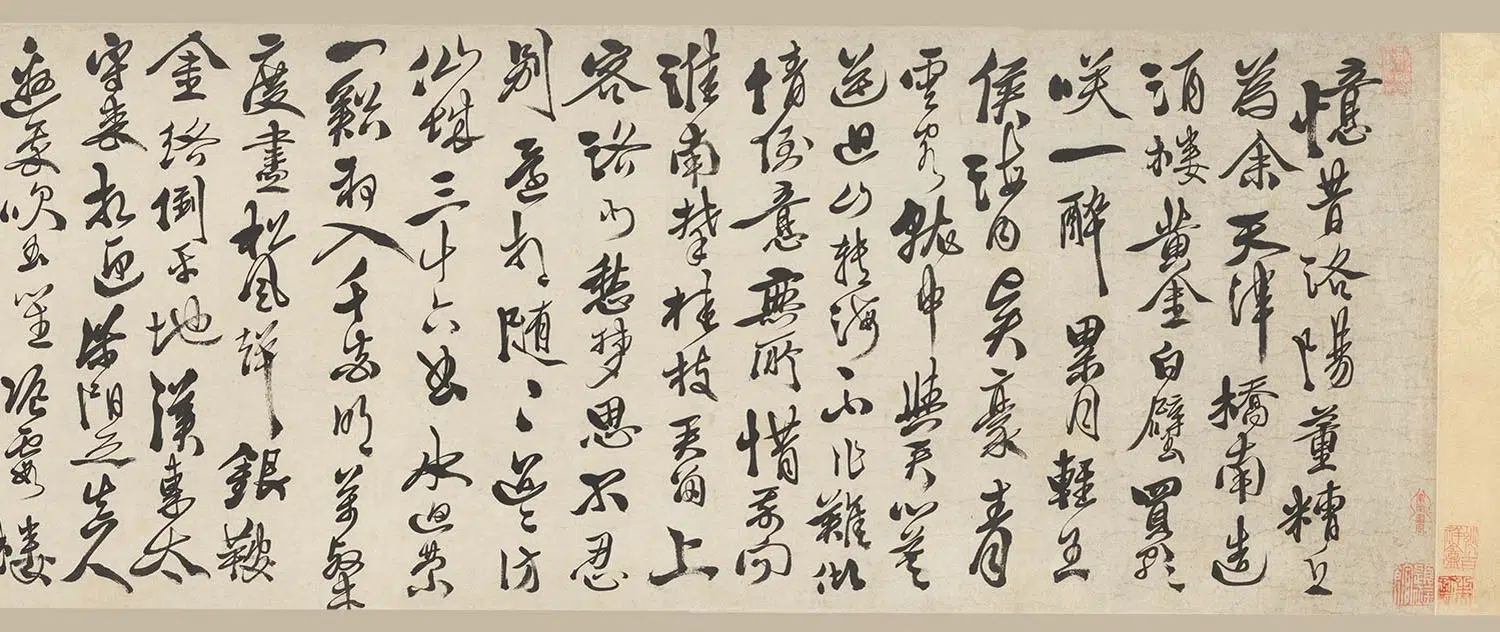 憶昔洛陽董糟丘
為余天津橋南造
酒樓黃金白璧買歌
咲一醉累月輕王
侯海內賢豪青
雲客就中與君心莫
逆迴山轉海不作難傾
情倒意無所惜我向
淮南攀桂枝君留
洛北愁夢思不忍
別還相〻隨〻迢〻訪
仙城三十六曲水迴縈
一谿初入千花明萬壑
度盡松風聲銀鞍
金絡倒平地漢東太
守來相迎紫陽之真人
邀我吹玉笙飡霞樓